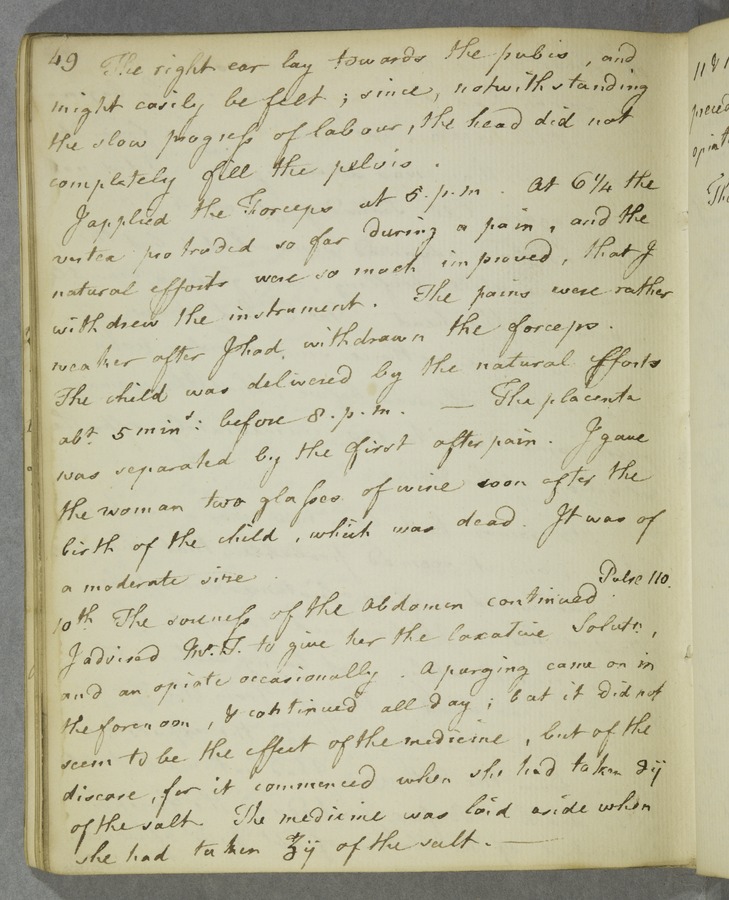 49 The right ear lay towards the pubis, and
might easily be felt; since, notwithstanding
the slow progress of labour, the head did not
completely fill the pelvis.
I applied the Forceps at 5. p.m. At 6 1/4 the
vertex protruded so far during a pain, and the
natural efforts were so much improved, that I
withdrew the instrument. The pains were rather
weaker after I had withdrawn the forceps.
The child was delivered by the natural efforts
abt. 5 mins: before 8. p.m. — The placenta
was separated by the first after pain. I gave
the woman two glasses of wine soon after the
birth of the child, which was dead. It was of
a moderate size.
Pulse 110.
10th The soreness of the abdomen continued.
I advised Mr. T. to give her the laxative Solutn,
and an opiate occasionally. A purging came on in
the forenoon, & continued all day; but it did not
seem to be the effect of the medicine, but of the
disease, for it commenced when she had taken ʒij
of the salt. The medicine was laid aside when
she had taken ℥ij of the salt. —
11 &
preced
opiat
Th